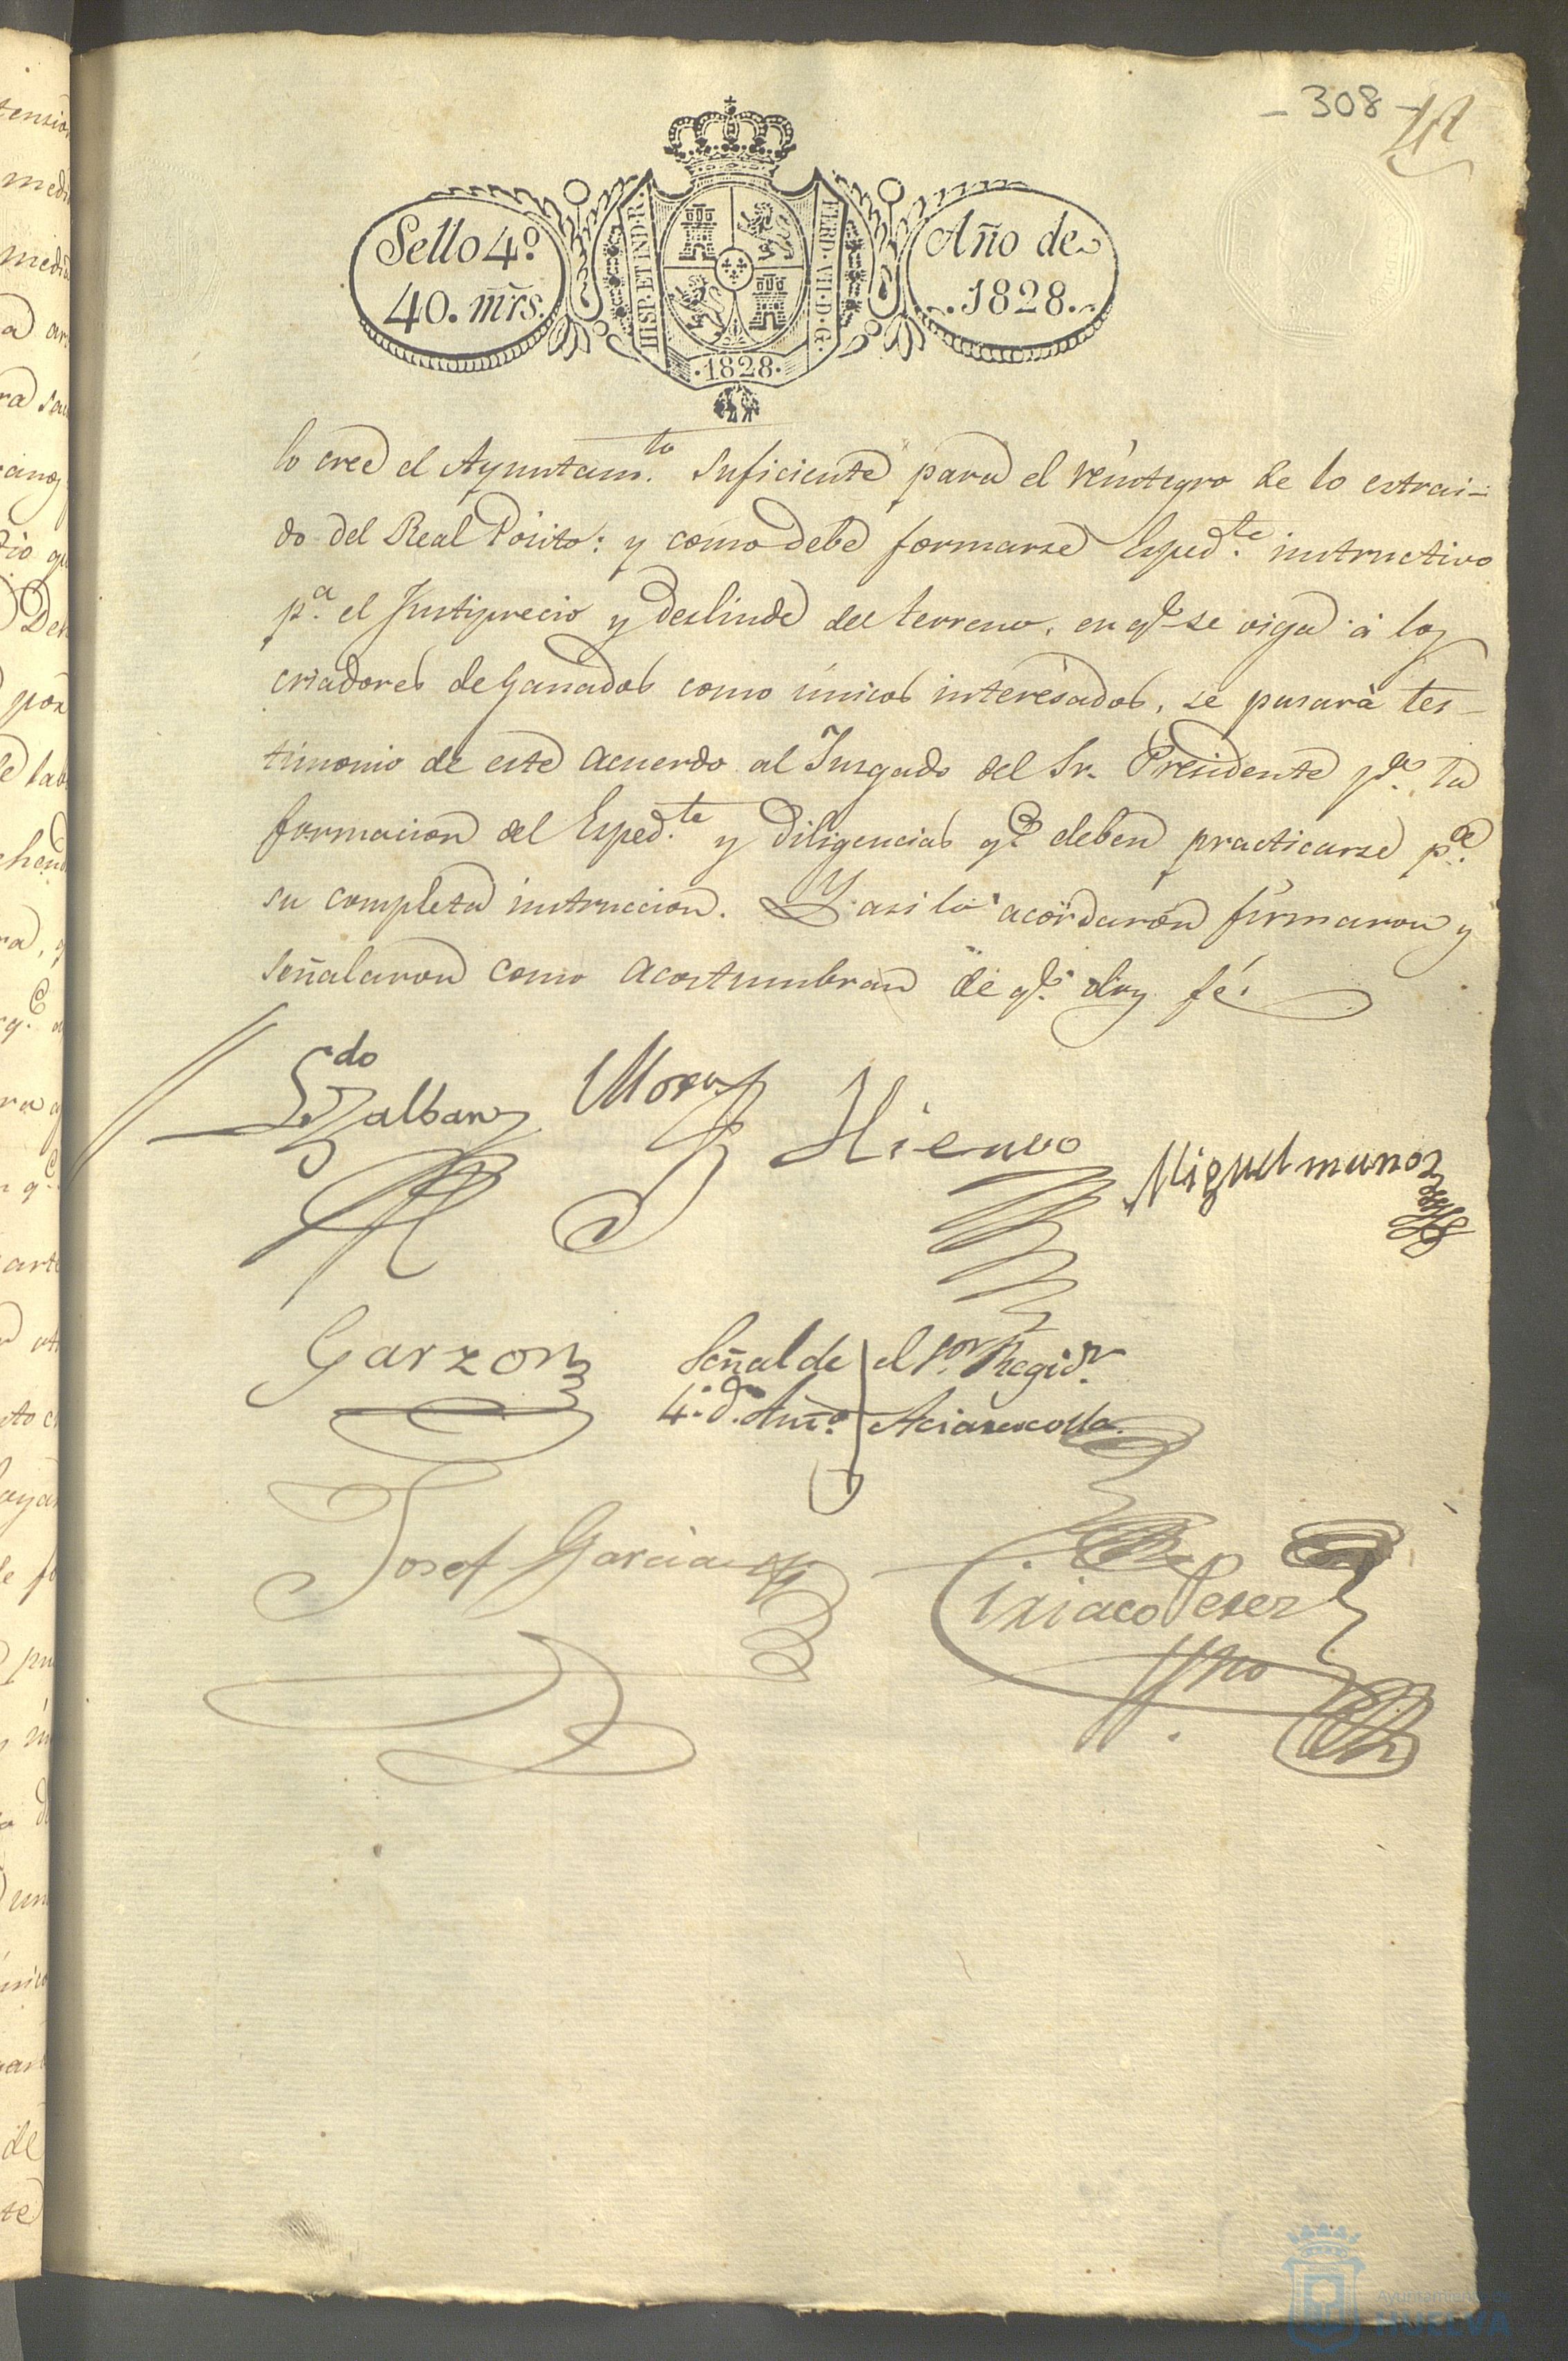 - 308 -
Sello 4º
40. mrs.
HISP. ET IND. R.
FERD. VII. D. G.
·1828·
Año de
1828.
lo cree el Ayuntamto. suficiente para el reintegro de lo estrai-
do del Real Pósito: y como debe formarse Espedte. instructivo
pa. el Justiprecio y deslinde del terreno, en qe. se oiga á los
criadores de Ganados como únicos interesados, se pasará tes-
timonio de este acuerdo al Juzgado del Sr. Presidente pa. la
formacion del Espedte. y diligencias qe. deben practicarse pa.
su completa instruccion. Y asi lo acordaron firmaron y
señalaron como acostumbran de qe. doy fé.
Ldo Zalban
Mora
Hierro
Miguel munoz
Garzon
Señal de el Sor. Regidr.
4º. d. Anto.
Josef Garcia
Ciriaco Perez
Ayuntamiento de
HUELVA